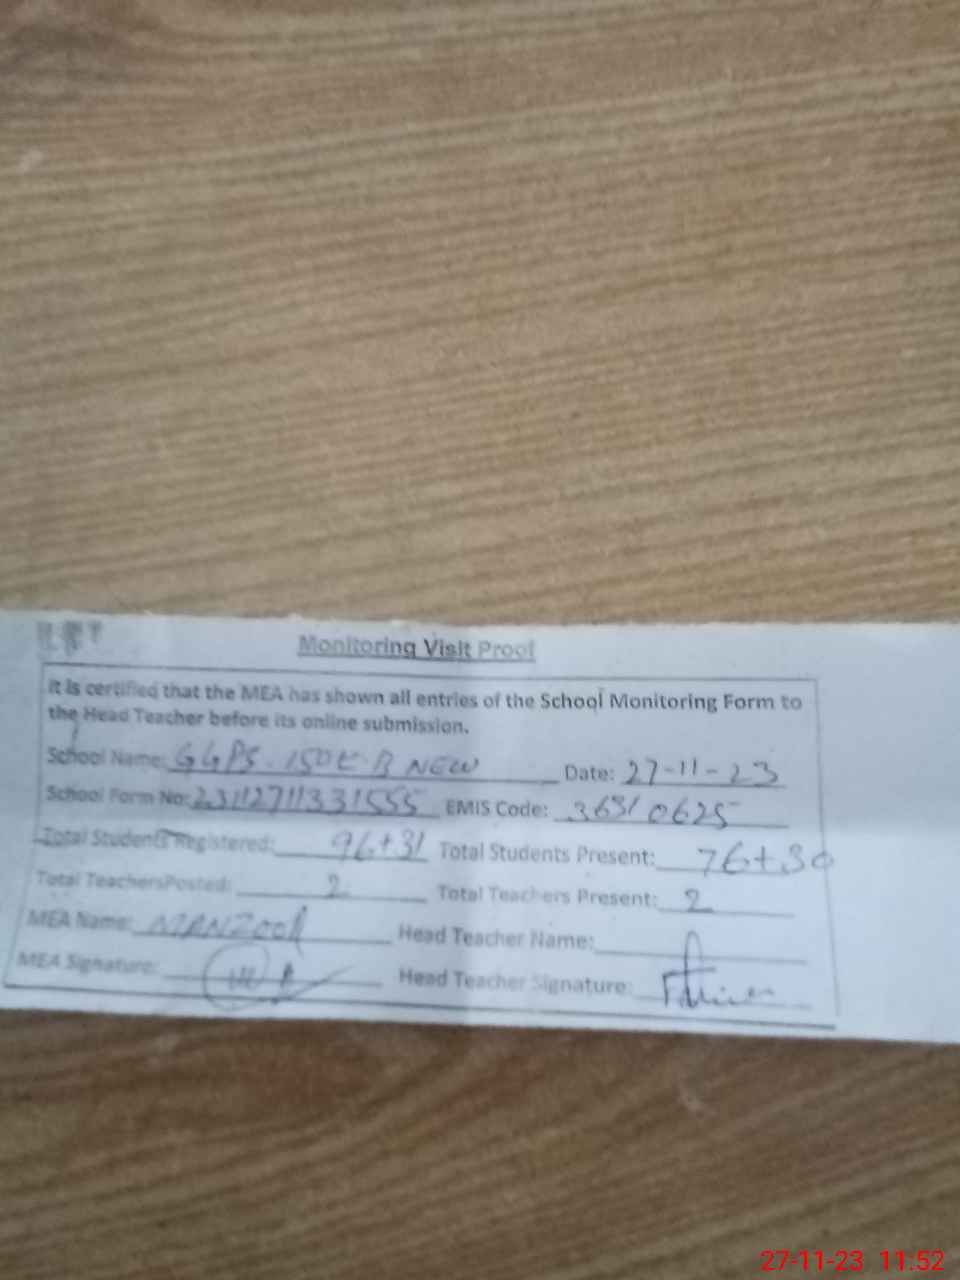 Monitoring Visit Proof
It is certified that the MEA has shown all entries of the School Monitoring Form to
the Head Teacher before its online submission.
School Name: GGPS. 150 E B NEW Date: 27-11-23
School Form No: 23112711331555 EMIS Code: 36310625
Total Students Registered: 96+31 Total Students Present: 76+30
Total TeachersPosted: 2 Total Teachers Present: 2
MEA Name: MANZOOR Head Teacher Name:
MEA Signature: Head Teacher Signature:
27-11-23 11:52